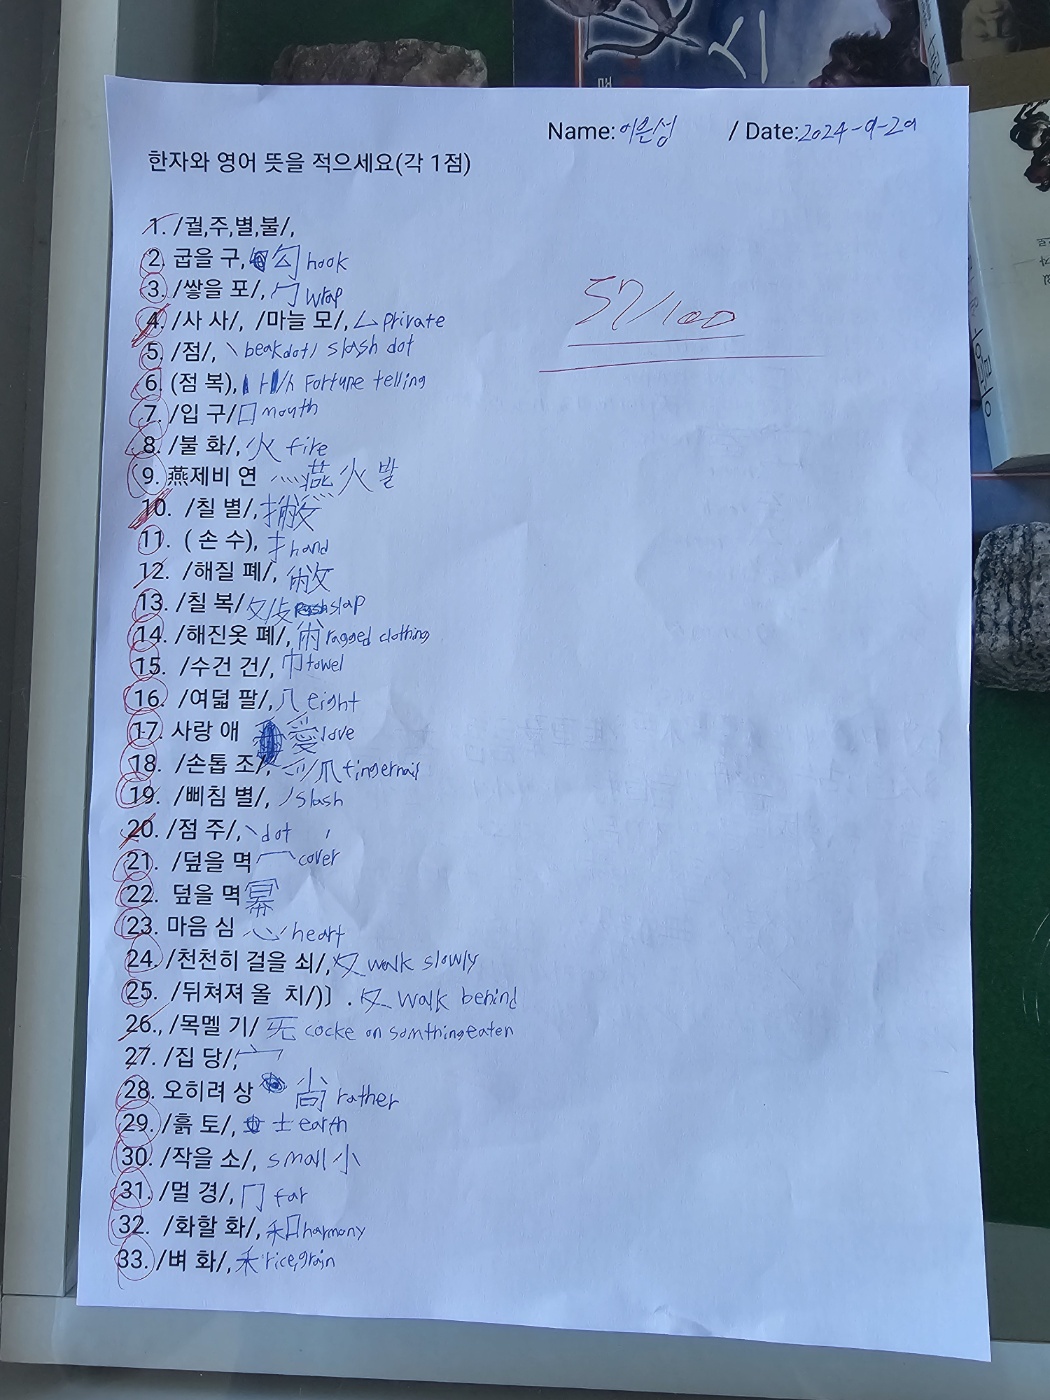 Name: 이은성 / Date: 2024-9-29
한자와 영어 뜻을 적으세요(각 1점)
57/100
1. /궐,주,별,불/,
2. 굽을 구, 勾 hook
3. /쌓을 포/, 勹 wrap
4. /사 사/, /마늘 모/, 厶 private
5. /점/, 丶 beakdot/ slash dot
6. (점 복), 卜/ Fortune telling
7. /입 구/ 口 mouth
8. /불 화/, 火 fire
9. 燕제비 연 灬 燕 火 발
10. /칠 별/, 撇
11. ( 손 수), 扌 hand
12. /해질 폐/, 敝
13. /칠 복/ 攵/攴 slap
14. /해진옷 폐/, 㡀 ragged clothing
15. /수건 건/, 巾 towel
16. /여덟 팔/, 八 eight
17. 사랑 애 愛 love
18. /손톱 조/, 爫/爪 fingernail
19. /삐침 별/, 丿 slash
20. /점 주/, 丶 dot
21. /덮을 멱 冖 cover
22. 덮을 멱 冪
23. 마음 심 心 heart
24. /천천히 걸을 쇠/, 夊 walk slowly
25. /뒤쳐져 올 치/)] . 夂 walk behind
26., /목멜 기/ 旡 cocke on somthing eaten
27. /집 당/, 宀
28. 오히려 상 尙 rather
29. /흙 토/, 土 earth
30. /작을 소/, small 小
31. /멀 경/, 冂 far
32. /화할 화/, 和 harmony
33. /벼 화/, 禾 rice, grain